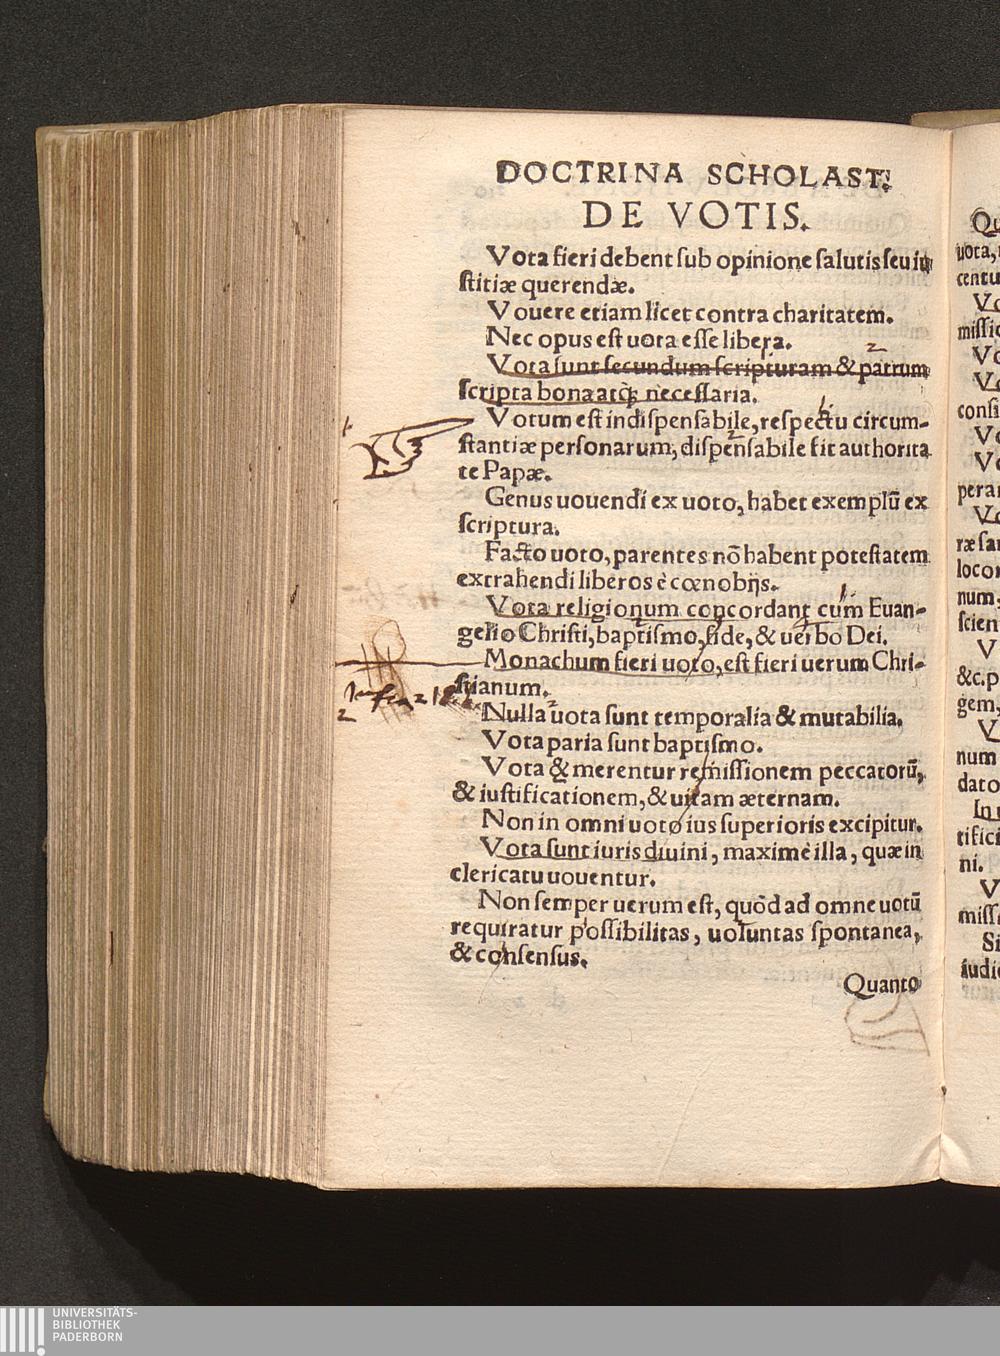 DOCTRINA SCHOLAST:
DE VOTIS.
Vota fieri debent sub opinione salutis seu iu
stitiæ querendæ.
Vouere etiam licet contra charitatem.
Nec opus est uota esse libera.
2
Vota sunt secundum scripturam & patrum
scripta bona atq; necessaria.
1.
Votum est indispensabile, respectu circum-
stantiæ personarum, dispensabile fit authorita
te Papæ.
Genus uouendi ex uoto, habet exemplũ ex
scriptura.
Facto uoto, parentes nõ habent potestatem
extrahendi liberos è cœnobijs.
Vota religionum concordant cum Euan-
gelio Christi, baptismo, fide, & uerbo Dei.
Monachum fieri uoto, est fieri uerum Chri-
stianum.
2
Nulla uota sunt temporalia & mutabilia.
Vota paria sunt baptismo.
Vota & merentur remissionem peccatorũ,
& iustificationem, & uitam æternam.
Non in omni uoto ius superioris excipitur.
Vota sunt iuris diuini, maximè illa, quæ in
clericatu uouentur.
Non semper uerum est, quòd ad omne uotũ
requiratur possibilitas, uoluntas spontanea,
& consensus.
Quanto
Qu
uota,
centu
Vo
missio
Vo
Vo
consi
Vo
Vo
perar
Vo
ræ san
locor
num,
scien
V
&c. p
gem,
V
num
dato
In
tifici
ni.
V
missi
Si
iudic
UNIVERSITÄTS-
BIBLIOTHEK
PADERBORN